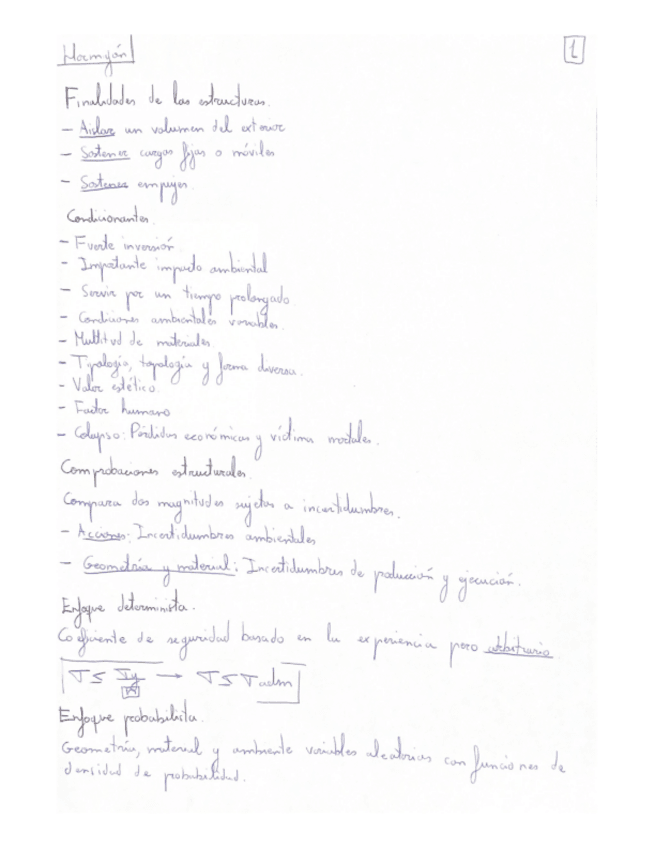 Hormigón
1
Finalidades de las estructuras.
- Aislar un volumen del exterior
- Sostener cargas fijas o móviles
- Sostener empujes.
Condicionantes.
- Fuerte inversión.
- Importante impacto ambiental
- Servir por un tiempo prolongado.
- Condiciones ambientales variables.
- Multitud de materiales
- Tipología, topología y forma diversa.
- Valor estético.
- Factor humano
- Colapso: Pérdidas económicas y víctimas mortales.
Comprobaciones estructurales.
Compara dos magnitudes sujetas a incertidumbres.
- Acciones: Incertidumbres ambientales
- Geometría y material: Incertidumbres de producción y ejecución.
Enfoque determinista.
Coeficiente de seguridad basado en la experiencia pero arbitrario
Enfoque probabilista.
Geometría, material y ambiente variables aleatorias con funciones de
densidad de probabilidad.